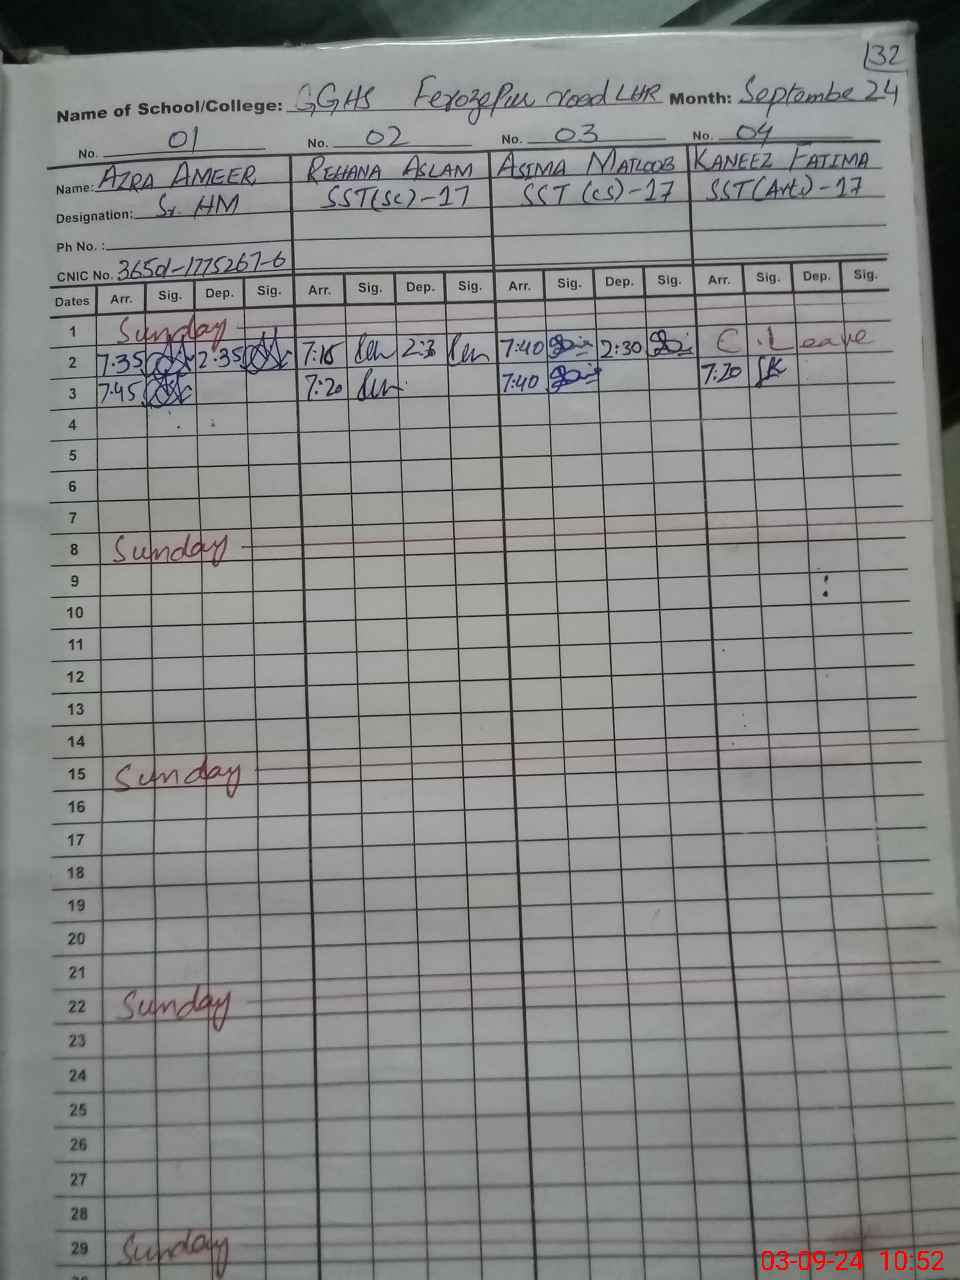 132
Name of School/College: GGHS Ferozepur road LHR Month: Septembe 24
No. 01 No. 02 No. 03 No. 04
Name: AZRA AMEER REHANA ASLAM ASIMA MATLOOB KANEEZ FATIMA
Designation: Sr. HM SST(Sc)-17 SST (CS)-17 SST(Arts)-17
Ph No. :
CNIC No.
Dates Arr. Sig. Dep. Sig. Arr. Sig. Dep. Sig. Arr. Sig. Dep. Sig. Arr. Sig. Dep. Sig.
1 Sunday
2 7:35 2:35 7:15 2:3 7:40 2:30 C. Leave
3 7:45 7:20 7:40 7:20 SK
4
5
6
7
8 Sunday
9
10
11
12
13
14
15 Sunday
16
17
18
19
20
21
22 Sunday
23
24
25
26
27
28
29 Sunday
03-09-24 10:52